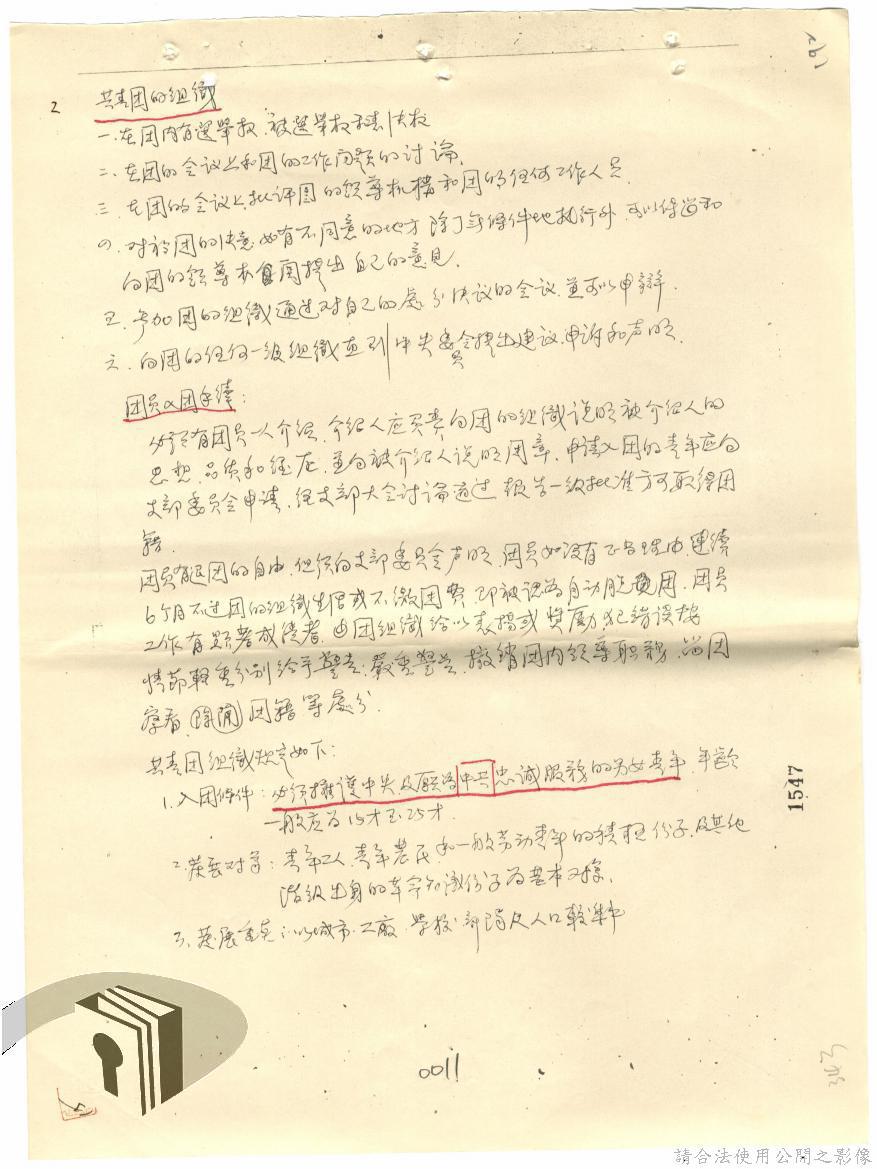 2
共青团的组織
一.在团内有選举权.被選举权和表决权
二.在团的会议上和团的工作问题的讨論.
三.在团的会议上批评团的领導机構和团的任何工作人員
对於团的决意如有不同意的地方 除了无條件地执行外 可以保留和
向团的领導 提出自己的意見.
五.参加团的组織通过对自己的處分决议的会议.並可以申辯.
六.向团的任何一级组織直到中央委員会提出建议.申诉和声明.
团員入团手续:
必須有团員二人介绍.介绍人应负责向团的组織说明被介绍人的
思想.品质和经历.並向被介绍人说明团章.申请入团的青年应向
支部委員会申请.经支部大会讨論通过 報告一级批准方可取得团
籍.
团員有退团的自由.但須向支部委員会声明.团員如没有正当理由.連续
6个月不过团的组織生活或不缴团费.即被認為自動脱團.团員
工作有顕著成绩者.由团组織给以表揚或獎励 犯错误按
情節輕重分别给予警告.嚴重警告.撤销团内领導职務.留团
察看.開除团籍等處分.
共青团组織规定如下:
1.入团條件:必须擁護中央及願為中共忠诚服務的男女青年.年齡
一般应為15才至25才.
2.發展对象:青年工人.青年農民.如一般劳动青年的積極份子.及其他
階级出身的革命知識份子為基本对象.
3.發展重点:以城市.工廠.学校.部隊及人口較集中
1547
0011
請合法使用公開之影像